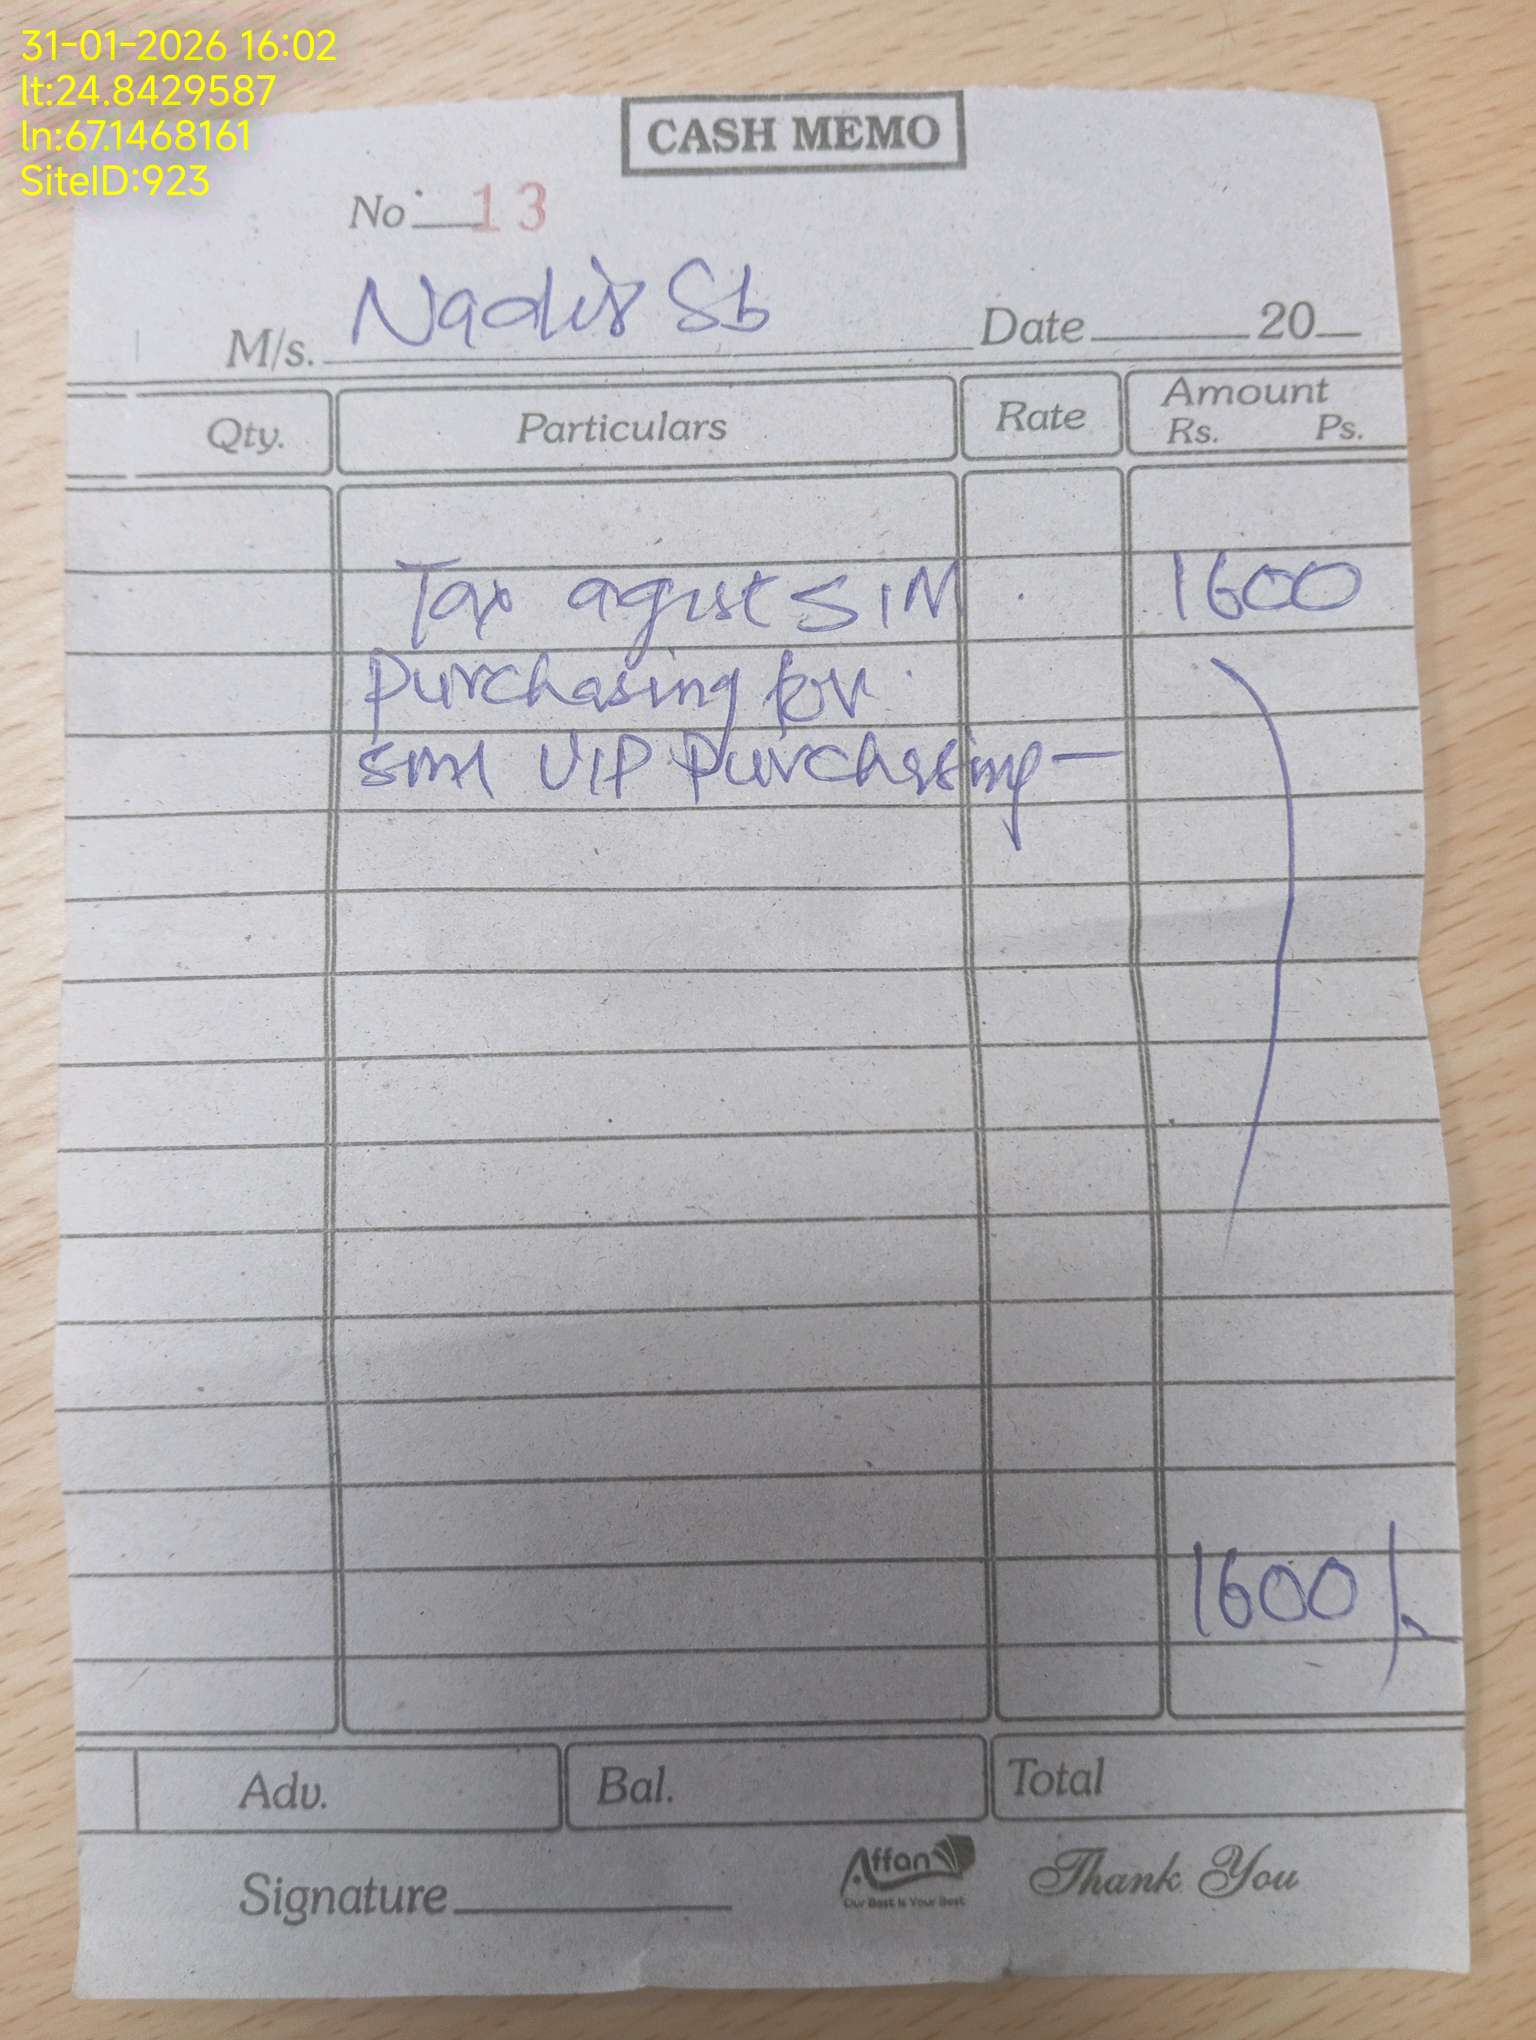 31-01-2026 16:02
lt:24.8429587
ln:67.1468161
SiteID:923
CASH MEMO
No. 13
M/s. Nadir Sb Date 20
Qty. Particulars Rate Amount Rs. Ps.
Tax agist SIM 1600
purchasing for
VIP purchasing
1600/-
Adv. Bal. Total
Signature Affan Our Best Is Your Best Thank You